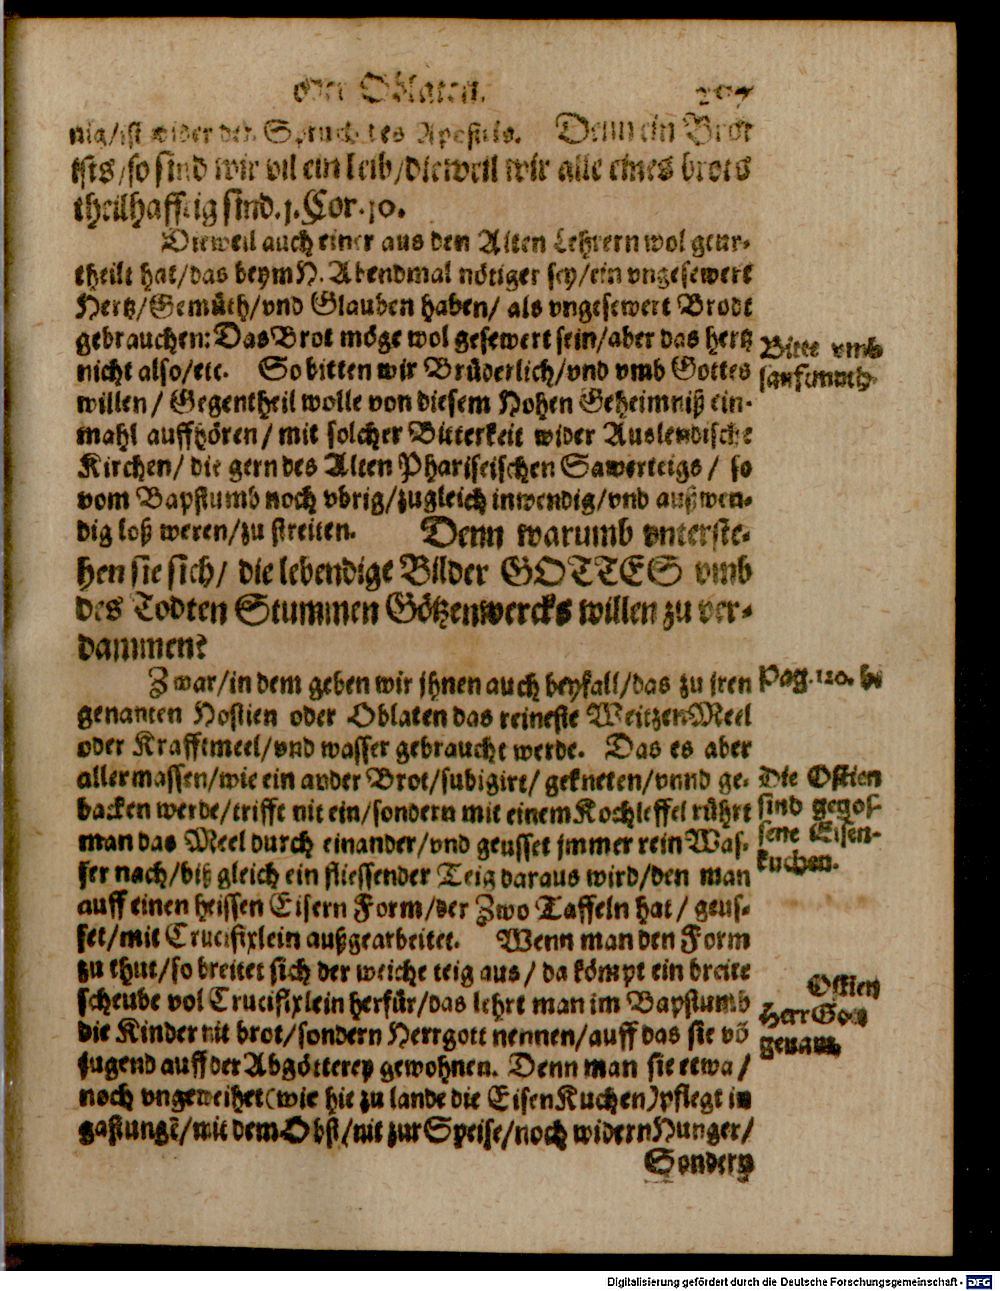 Der Oblaten.
nig/ist wider den Spruch des Apostels. Denn ein Brot
ists/so sind wir vil ein leib/dieweil wir alle eines brots
theilhafftig sind.1.Cor.10.
Dieweil auch einer aus den Alten Lehrern wol geur-
theilt hat/das beym H. Abendmal nötiger sey/ein vngesewert
Hertz/Gemüth/vnd Glauben haben/ als vngesewert Brodt
gebrauchen: Das Brot möge wol gesewert sein/aber das hertz
nicht also/etc. So bitten wir Brüderlich/vnd vmb Gottes
willen/ Gegentheil wolle von diesem Hohen Geheimniß ein-
mahl auffhören/ mit solcher Bitterkeit wider Auslendische
Kirchen/ die gern des Alten Phariseischen Sawerteigs/ so
vom Bapstumb noch vbrig/zugleich inwendig/vnd außwen-
dig loß weren/zu streiten. Denn warumb vnterste-
hen sie sich/ die lebendige Bilder GOTTES vmb
des Todten Stummen Götzenwercks willen zu ver-
dammen?
Zwar/in dem geben wir jhnen auch beyfall/das zu jren
genanten Hostien oder Oblaten das reineste Weitzen Meel
oder Krafftmeel/vnd wasser gebraucht werde. Das es aber
allermassen/wie ein ander Brot/subigirt/ gekneten/vnnd ge-
backen werde/trifft nit ein/sondern mit einem Kochleffel rührt
man das Meel durch einander/vnd geusset jmmer rein Was-
ser nach/biß gleich ein fliessender Teig daraus wird/den man
auff einen heissen Eisern Form/der Zwo Taffeln hat/ geus-
set/mit Crucifixlein außgearbeitet. Wenn man den Form
zu thut/so breitet sich der weiche teig aus/ da kömpt ein breite
scheube vol Crucifixlein herfür/das lehrt man im Bapstumb
die Kinder nit brot/sondern Herrgott nennen/auff das sie võ
jugend auff der Abgötterey gewohnen. Denn man sie etwa/
noch vngeweihet(wie hie zu lande die Eisen Kuchen)pflegt in
gastungẽ/mit dem Obst/nit zur Speise/noch widern Hunger/
Sondern
Bitte vmb
sanftmuth.
Pag. 120. b.
Die Ostien
sind gegos-
sene Eisen-
kuchen.
Ostien
Herr Gott
genant.
Digitalisierung gefördert durch die Deutsche Forschungsgemeinschaft - DFG